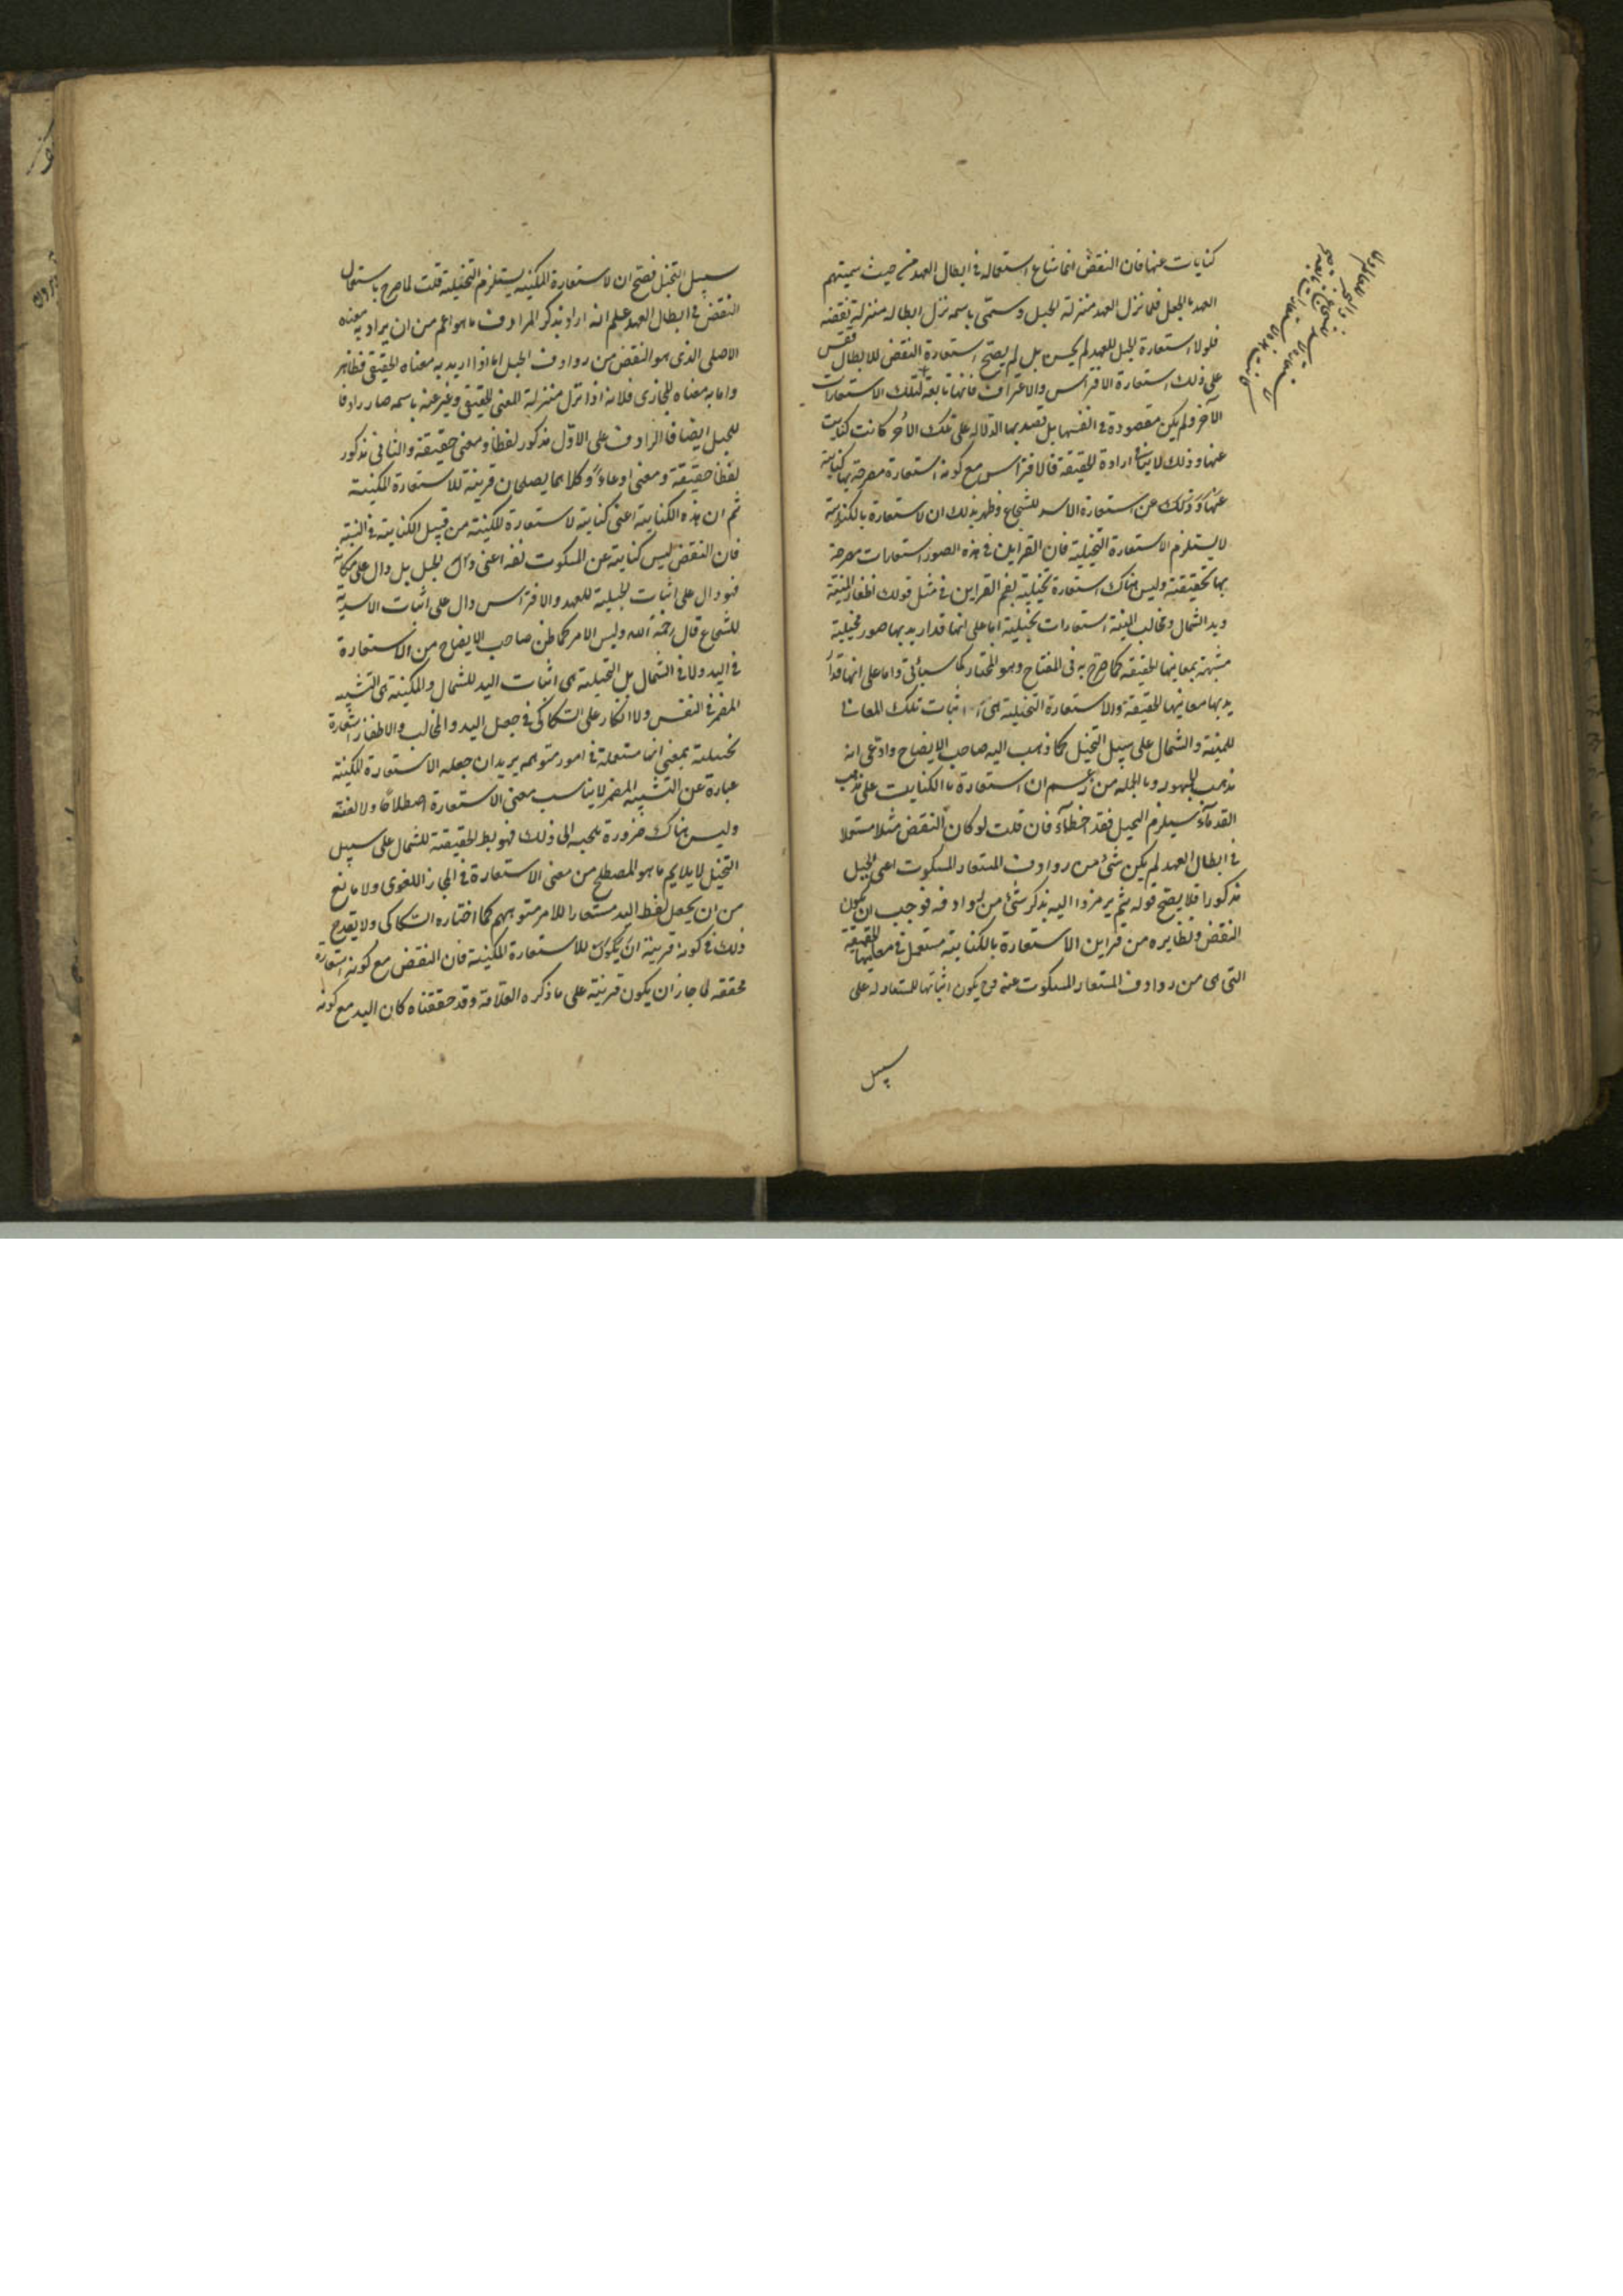 كنايات عنها فان النقض انما شاع استعماله في ابطال العهد من حيث تسميتهم
العهد بالحبل فلما نزل العهد منزلة الحبل وسمى باسمه نزل ابطاله منزلة نقضه
فلولا استعارة الحبل للعهد لم يحسن بل لم يصح استعارة النقض للابطال فقس
على ذلك استعارة الافتراس والاغتراف فانها تابعة لتلك الاستعارات
الاخر ولم يكن مقصودة في انفسها بل قصد بها الدلالة على تلك الأخر كانت كنايات
عنها وذلك لا ينافي ارادة الحقيقة فالافتراس مع كونه استعارة مصرحة بها كناية
عن استعارة الاسد للشجاع وظهر بذلك ان الاستعارة بالكناية
لا يستلزم الاستعارة التخيلية فان القراين في هذه الصور استعارات مصرحة
بها تحقيقية وليس هناك استعارة تخيلية نعم القراين في مثل قولك اظفار المنية
ويد الشمال ومخالب المنية استعارات تخييلية اما على انها قد اريد بها صور تخيلية
مشبهة بمعانيها الحقيقة كما صرح به في المفتاح وهو المختار كما سيأتى واما على انها قد ا
ريد بها معانيها الحقيقة والاستعارة التخيلية هى اثبات تلك المعانى
للمنية والشمال على سبيل التخيل كما ذهب اليه صاحب الايضاح وادعى انه
مذهب الجمهور وبالجملة من زعم ان استعارة بالكنايت على مذهب
القدماء يستلزم التخيل فقد اخطأ فان قلت لو كان النقض مثلا مستعملا
في ابطال العهد لم يكن شئ من روادف المستعار المسكوت اعنى الحبل
مذكورا فلا يصح قوله ثم يرمزوا اليه بذكر شئ من روادفه فوجب ان يكون
النقض ونظايره من قراين الاستعارة بالكناية مستعمل في معانيها الحقيقة
التى هى من روادف المستعار المسكوت عنه وح يكون اثباتها للمستعار له على
سبيل
سبيل التخيل فصح ان الاستعارة المكنية يستلزم التخيلية قلت لما صرح باستعمال
النقض في ابطال العهد علم انه اراد بذكر المرادف ما هو اعم من ان يراد به معناه
الاصلى الذى هو النقض من روادف الحبل اما اذا اريد به معناه الحقيقى فظاهر
واما به معناه المجازى فلانه اذا نزل منزلة المعنى الحقيقى وعبر عنه باسمه صار رادفا
للحبل ايضا فالرادف على الاول مذكور لفظا ومعنى حقيقة والثانى مذكور
لفظا حقيقة ومعنى ادعاء وكلاهما يصلحان قرينة للاستعارة المكنية
ثم ان هذه الكناية اعنى كناية الاستعارة المكنية من قبيل الكناية في النسبة
فان النقض ليس كناية عن المسكوت نفسه اعنى الحبل بل دال على مكانه
فهو دال على اثبات الحبلية للعهد والافتراس دال على اثبات الاسدية
للشجاع قال رحمه الله وليس الامر كما ظن صاحب الايضاح من الاستعارة
في اليد ولا في الشمال بل التخيلية هى اثبات اليد للشمال والمكنية هى التشبيه
المضمر في النفس ولا انكار على السكاكى في جعل اليد والمخالب والاظفار استعارة
تخيلية بمعنى انها مستعملة في امور متوهمه يريد ان جعله الاستعارة المكنية
عبارة عن التشبيه المضمر لا يناسب معنى الاستعارة اصطلاحا ولا لغة
وليس هناك ضرورة تلجيه الى ذلك الحقيقة للشمال على سبيل
التخيل لا يلايم ما هو المصطلح من معنى الاستعارة في المجاز اللغوى ولا مانع
من ان يجعل لفظ اليد مستعارا للامر متوهم كما اختاره السكاكى ولا يقدح
ذلك في كونه قرينة للاستعارة المكنية فان النقض مع كونه استعارة
محققة لما جاز ان يكون قرينة على ما ذكره العلامة وقد حققناه كان اليد مع كونه